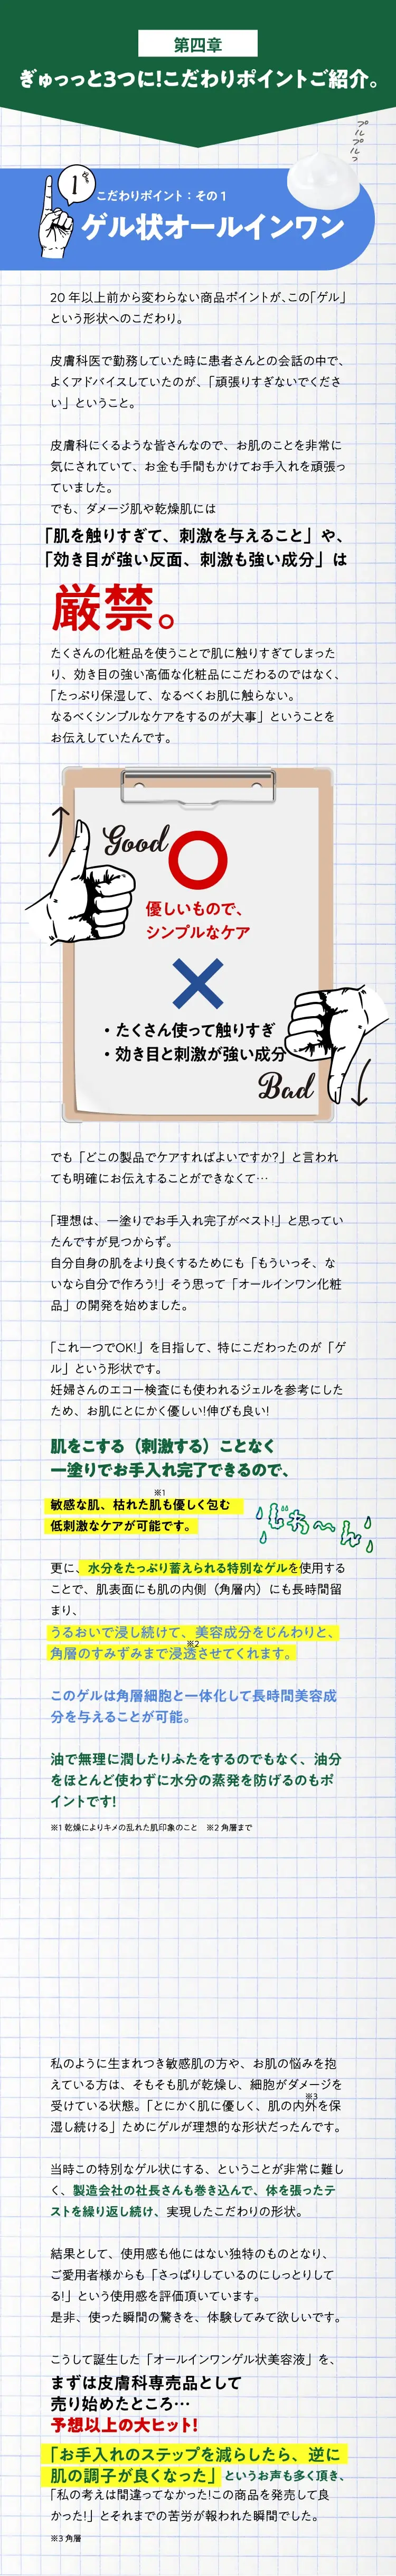 第四章
ぎゅっっと3つに!こだわりポイントご紹介。
プルプルっ
1つめ
こだわりポイント：その1
ゲル状オールインワン
20年以上前から変わらない商品ポイントが、この「ゲル」
という形状へのこだわり。
皮膚科医で勤務していた時に患者さんとの会話の中で、
よくアドバイスしていたのが、「頑張りすぎないでくださ
い」ということ。
皮膚科にくるような皆さんなので、お肌のことを非常に
気にされていて、お金も手間もかけてお手入れを頑張っ
ていました。
でも、ダメージ肌や乾燥肌には
「肌を触りすぎて、刺激を与えること」や、
「効き目が強い反面、刺激も強い成分」は
厳禁。
たくさんの化粧品を使うことで肌に触りすぎてしまった
り、効き目の強い高価な化粧品にこだわるのではなく、
「たっぷり保湿して、なるべくお肌に触らない。
なるべくシンプルなケアをするのが大事」ということを
お伝えしていたんです。
Good
優しいもので、
シンプルなケア
・たくさん使って触りすぎ
・効き目と刺激が強い成分
Bad
でも「どこの製品でケアすればよいですか?」と言われ
ても明確にお伝えすることができなくて…
「理想は、一塗りでお手入れ完了がベスト!」と思ってい
たんですが見つからず。
自分自身の肌をより良くするためにも「もういっそ、な
いなら自分で作ろう!」そう思って「オールインワン化粧
品」の開発を始めました。
「これ一つでOK!」を目指して、特にこだわったのが「ゲ
ル」という形状です。
妊婦さんのエコー検査にも使われるジェルを参考にした
ため、お肌にとにかく優しい!伸びも良い!
肌をこする（刺激する）ことなく
一塗りでお手入れ完了できるので、
※1
敏感な肌、枯れた肌も優しく包む
低刺激なケアが可能です。
じわ〜ん
更に、水分をたっぷり蓄えられる特別なゲルを使用する
ことで、肌表面にも肌の内側（角層内）にも長時間留
まり、
うるおいで浸し続けて、美容成分をじんわりと、
※2
角層のすみずみまで浸透させてくれます。
このゲルは角層細胞と一体化して長時間美容成
分を与えることが可能。
油で無理に潤したりふたをするのでもなく、油分
をほとんど使わずに水分の蒸発を防げるのもポ
イントです!
※1 乾燥によりキメの乱れた肌印象のこと　※2 角層まで
私のように生まれつき敏感肌の方や、お肌の悩みを抱
えている方は、そもそも肌が乾燥し、細胞がダメージを
※3
受けている状態。「とにかく肌に優しく、肌の内外を保
湿し続ける」ためにゲルが理想的な形状だったんです。
当時この特別なゲル状にする、ということが非常に難し
く、製造会社の社長さんも巻き込んで、体を張ったテ
ストを繰り返し続け、実現したこだわりの形状。
結果として、使用感も他にはない独特のものとなり、
ご愛用者様からも「さっぱりしているのにしっとりして
る!」という使用感を評価頂いています。
是非、使った瞬間の驚きを、体験してみて欲しいです。
こうして誕生した「オールインワンゲル状美容液」を、
まずは皮膚科専売品として
売り始めたところ…
予想以上の大ヒット!
「お手入れのステップを減らしたら、逆に
肌の調子が良くなった」というお声も多く頂き、
「私の考えは間違ってなかった!この商品を発売して良
かった!」とそれまでの苦労が報われた瞬間でした。
※3 角層